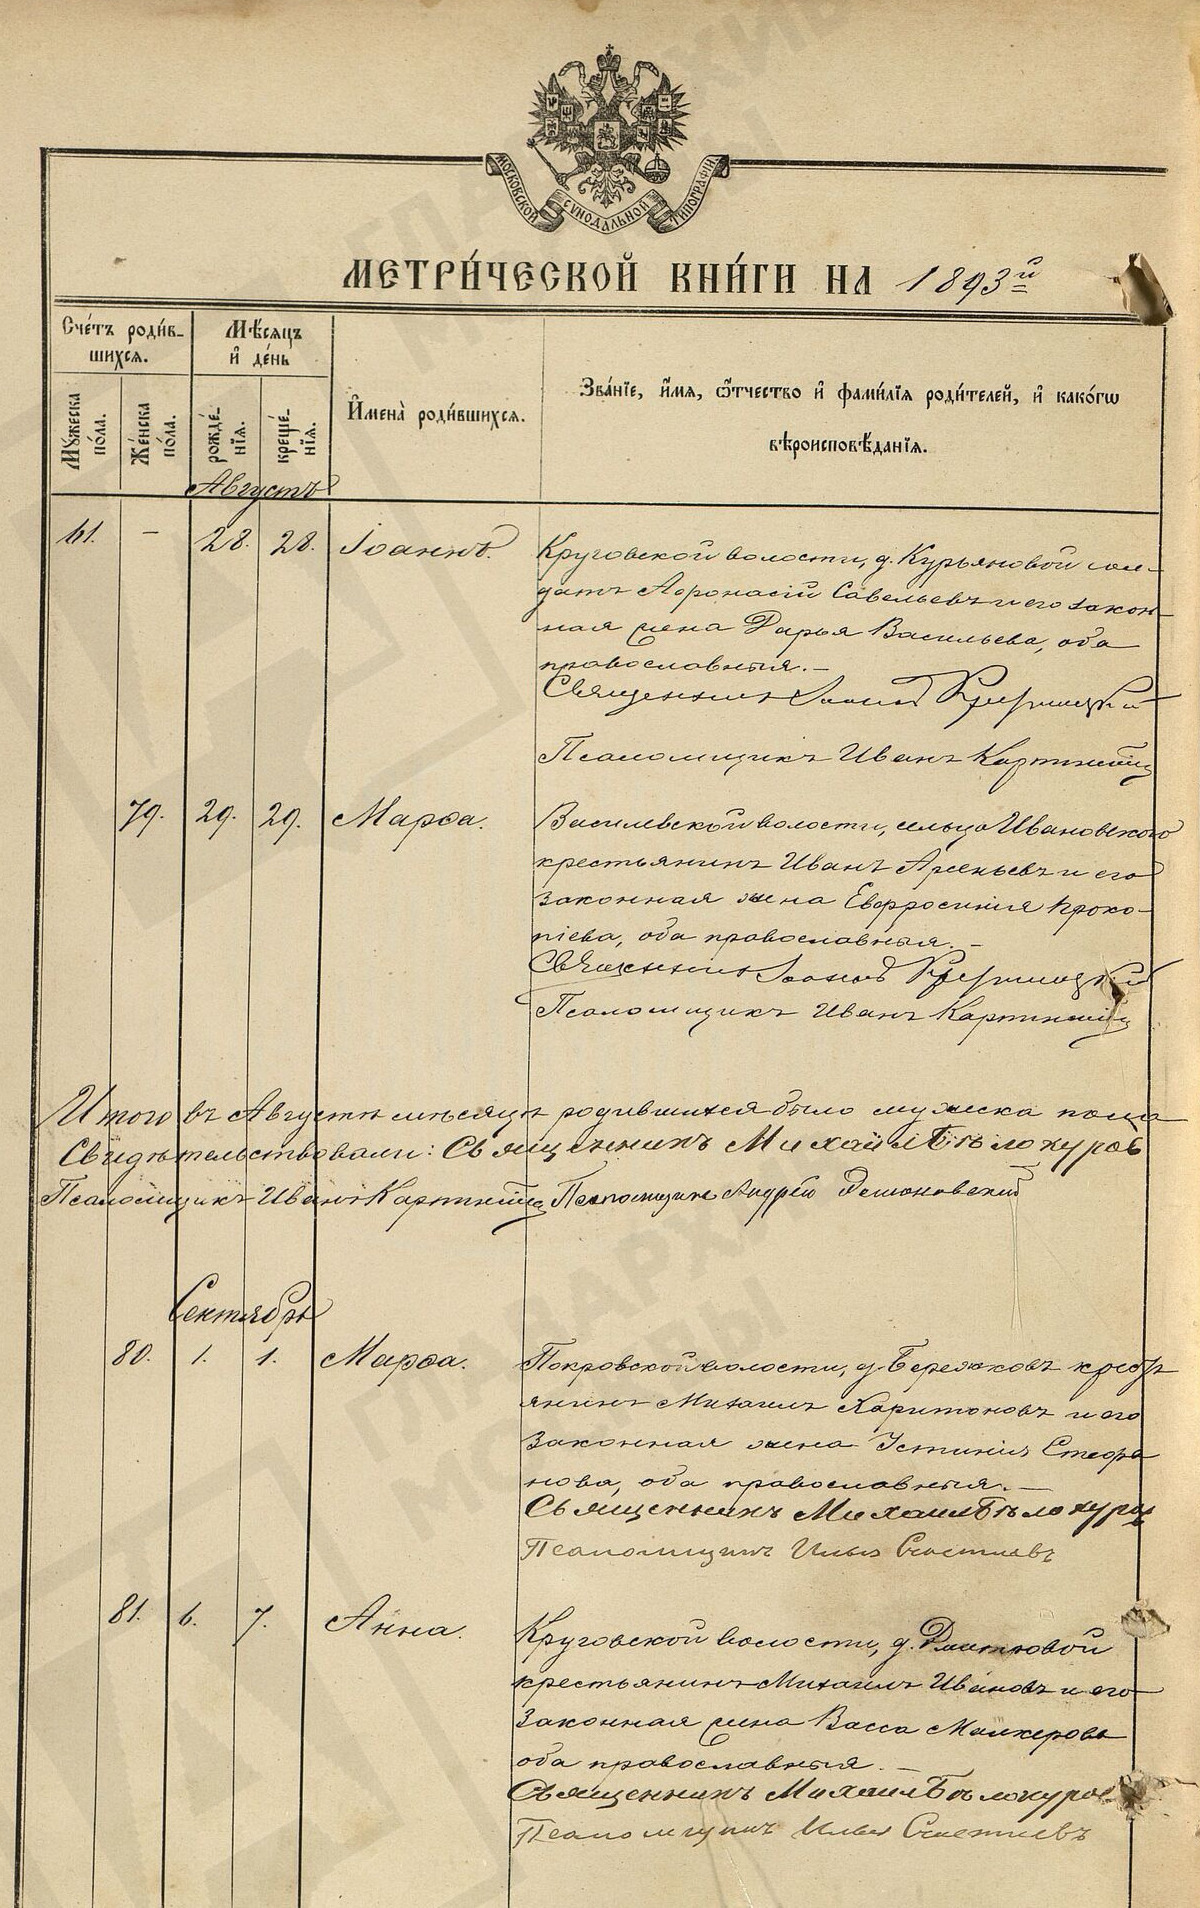 МОСКОВСКОЙ СѴНОДАЛЬНОЙ ТИПОГРАФІИ
МЕТРИ́ЧЕСКОЙ КНИ́ГИ НА 1893й
Сче́тъ роди́в-
шихся.
Мѣ́сяцъ
и҆ де́нь
Му́жеска
по́ла.
Же́нска
по́ла.
рожде́-
нїя.
креще́-
нїя.
И҆мена̀ роди́вшихся.
Зва́нїе, и҆́мя, ѻ҆́тчество и҆ фами́лїя роди́телей, и҆ како́гѡ
вѣроисповѣ́данїя.
Августъ
61. – 28. 28. Іоаннъ. Круговской волости, д. Курьяновой сол-
датъ Аѳонасій Савельевъ и его закон-
ная жена Дарья Васильева, оба
православныя. –
Священникъ Іоаннъ
Псаломщикъ Иванъ Картинскій
79. 29. 29. Марѳа. Василевской волости, сельца Ивановского
крестьянинъ Иванъ Арсеньевъ и его
законная жена Евфросинія Проко-
піева, оба православныя. –
Священникъ Іоаннъ
Псаломщикъ Иванъ Картинскій
Итого въ Августѣ мѣсяцѣ родившихся было мужска пола
Свидѣтельствовали: Священникъ Михаилъ Бѣлокуровъ
Псаломщикъ Иванъ Картинскій Псаломщикъ Андрей Демоновскій
Сентябрь
80. 1. 1. Марѳа. Покровской волости, д. Бережковъ кресть
янинъ Михаилъ Харитоновъ и его
законная жена Устинія Стефа
нова, оба православныя. –
Священникъ Михаилъ Бѣлокуровъ
Псаломщикъ Илья Счастневъ
81. 6. 7. Анна. Круговской волости, д. Дмитровой
крестьянинъ Михаилъ Ивановъ и его
законная жена Васса Малкерова
оба православныя. –
Священникъ Михаилъ Бѣлокуровъ
Псаломщикъ Илья Счастневъ